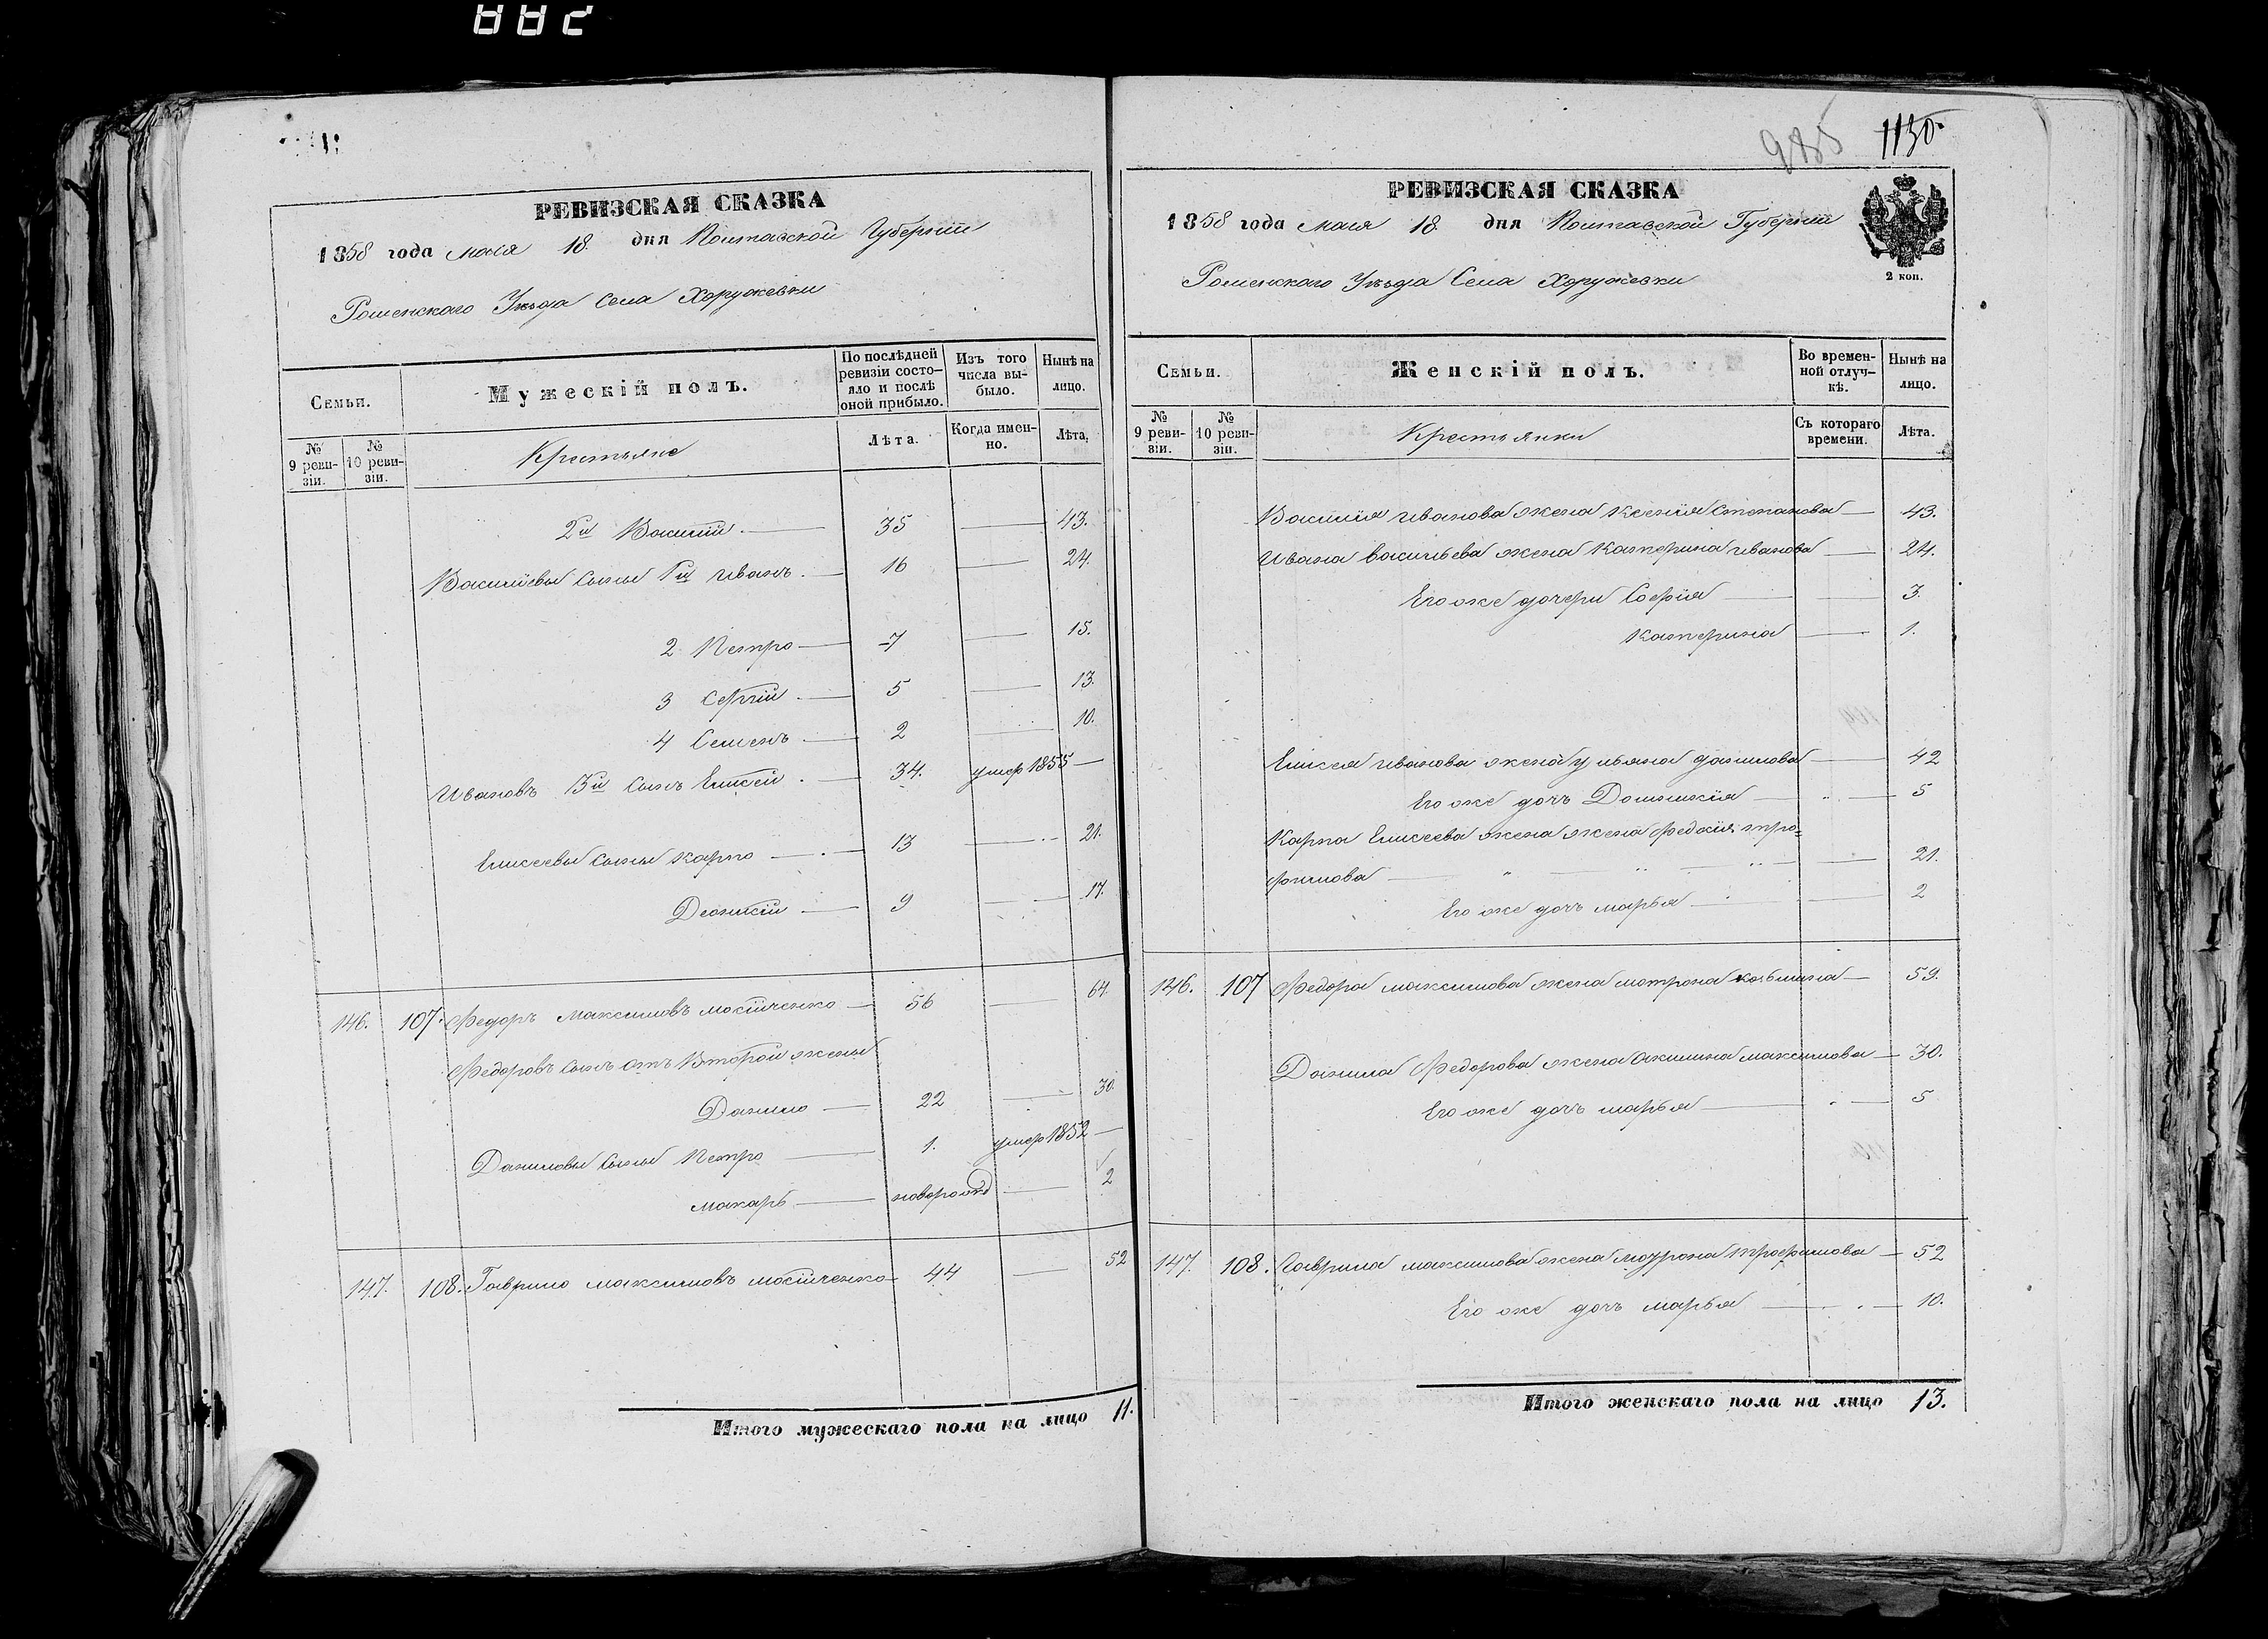 882
985 1130.
РЕВИЗСКАЯ СКАЗКА
1858 года мая 18. дня Полтавской Губерніи
Роменскаго Уѣзда Села Хоружевки
Семьи.
Мужескій полъ.
По послѣдней ревизіи состояло и послѣ оной прибыло.
Изъ того числа выбыло.
Нынѣ на лицо.
№ 9 ревизіи.
№ 10 ревизіи.
Крестьяне
Лѣта.
Когда именно.
Лѣта.
2й Василій — 35 — 43.
Василіевы сыны 1й Иванъ. — 16 — 24.
2 Петро — 7 — 15.
3 Сергій — 5 — 13.
4 Семенъ — 2 — 10.
Ивановъ 3й сынъ Елисей. — 34. умер 1855 —
Елисеевы сыны Карпо — 13 — 21.
Деонисій — 9 — 17.
146. 107. Федоръ Максимовъ — 56 — 64.
Федоровъ сынъ отъ второй жены
Данило — 22 — 30.
Даниловы сыны Петро — 1. умер 1852 —
Макаръ — новорожд — 2
147. 108. Гаврило Максимовъ — 44 — 52
Итого мужескаго пола на лицо 11.
РЕВИЗСКАЯ СКАЗКА
1858 года мая 18. дня Полтавской Губерніи
2 коп.
Роменскаго Уѣзда Села Хоружевки
Семьи.
Женскій полъ.
Во временной отлучкѣ.
Нынѣ на лицо.
№ 9 ревизіи.
№ 10 ревизіи.
Крестьянки
Съ котораго времени.
Лѣта.
Василія Иванова жена Ксенія Степанова — 43.
Ивана Васильева жена Катерина Иванова — 24.
Его же дочери Софія — 3.
Катерина — 1.
Елисея Иванова жена Ульяна Данилова — 42
Его же дочь — 5
Карпа Елисеева жена жена Федосія тро=
фимова — 21.
Его же дочь Марья — 2
146. 107 Федора Максимова жена Мотрона Козьмина — 59.
Данила Федорова жена Акилина Максимова — 30.
Его же дочь Марья — 5
147. 108. Гаврила Максимова жена Мотрона Трофимова — 52
Его же дочь Марья — 10.
Итого женскаго пола на лицо 13.